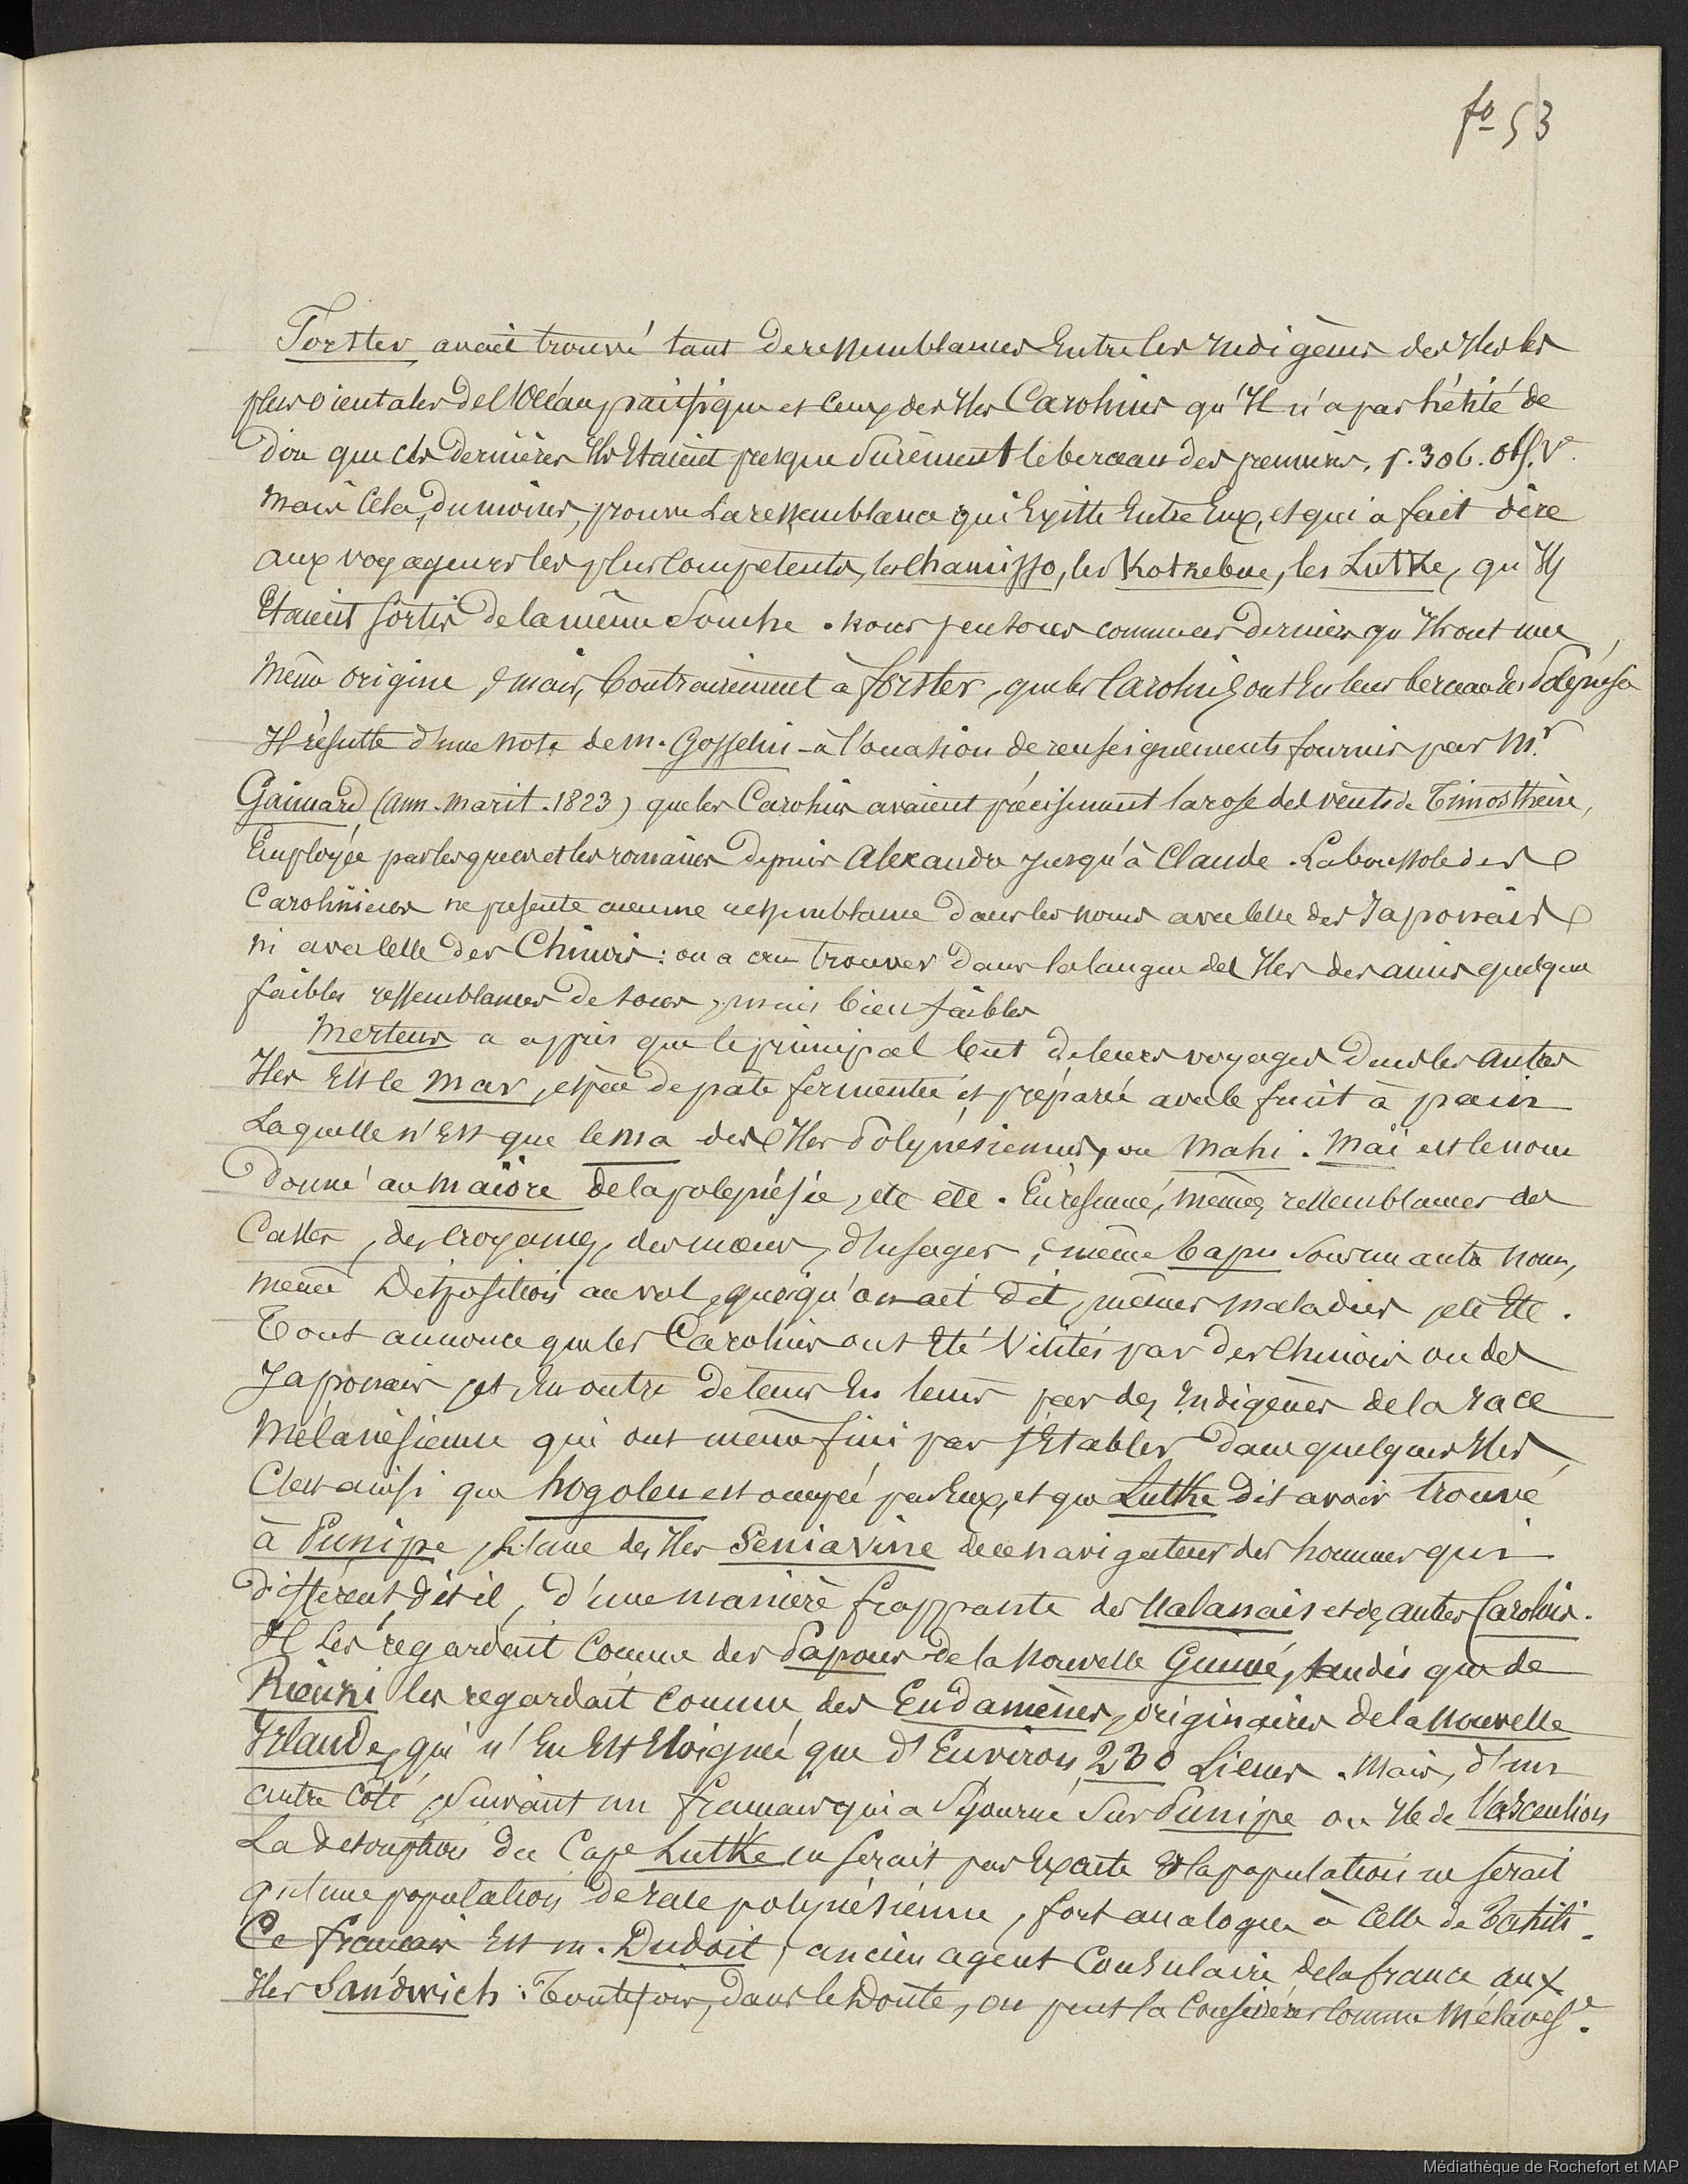 fo 53
Forster avait trouvé tant de ressemblances Entre les Indigènes des Iles les
plus orientales de l'Océan pacifique et ceux des Iles Carolines qu'Il n'a pas hésité de
dire que ces dernières Iles Etaient presque Surement le berceau des premières. p. 306. obs. Ve.
Mais Cela, du moins, prouve La ressemblance qui Existe Entre Eux, et qui a fait dire
aux voyageurs les plus Compétents, les Chamisso, les Kotzebue, les Lutke, qu'Ils
Etaient Sortis de la même Souche. Nous pensons comme ces derniers qu'Ils ont une
Même origine, mais, Contrairement à forster, que les Carolins ont Eu leur berceau En Polynésie
Il résulte d'une note de m. Gosselin - à l'occasion de renseignements fournis par Mr
Gaimard (ann. marit. 1823) que les Carolins avaient précisément la rose des vents de Timosthène,
Employée par les grecs et les romains depuis Alexandre Jusqu'à Claude. La boussole des
Caroliniens ne présente aucune ressemblance dans les noms avec Celle des Japonais
ni avec Celle des Chinois : on a cru trouver dans la langue des Iles des amis quelques
faibles ressemblances de sons, mais bien faibles
Mertens a appris que le principal but de leurs voyages dans les autres
Iles Est le mar, espèce de pâte fermentée et préparée avec le fruit à pain
Laquelle n'Est que le ma des Iles Polynésiennes, ou Mahi. Maï est le nom
donné au maïore de la polynésie, etc etc. En résumé, mêmes ressemblances des
Castes, des Croyances, des mœurs, d'usages, même Tapu Sous un autre nom,
même Disposition au vol, quoiqu'on ait dit, mêmes maladies, etc Etc.
Tout annonce que les Carolins ont Eté Visités par des Chinois ou des
Japonais, et En outre de temps En temps par des Indigènes de la race
Mélanésienne qui ont même fini par s'Etablir dans quelques Iles,
C'est ainsi que hogoleu est occupé par Eux, et que Lutke dit avoir trouvé
à Punipe, l'une des Iles Seniavine de ce navigateur des hommes qui
diffèrent, dit il, d'une manière frappante des Ualanais et des autres Carolins.
Il Les regardait Comme des Papous de la Nouvelle Guinée, tandis que de
Rienzi les regardait Comme des Endamènes, originaires de la Nouvelle
Irlande, qui n'En Est Eloignée que d'Environ 230 Lieues. Mais, d'un
autre Côté, Suivant un français qui a Séjourné Sur Punipe ou Ile de l'ascention
La description du Cape Lutke ne Serait pas Exacte Et la population ne Serait
qu'une population de race polynésienne, fort analogue à Celle de Tahiti.
Ce français Est m. Dudoit, ancien agent Consulaire de la france aux
Iles Sandwich : Toutefois, dans le Doute, on peut la Considérer Comme Mélanése.
Médiathèque de Rochefort et MAP